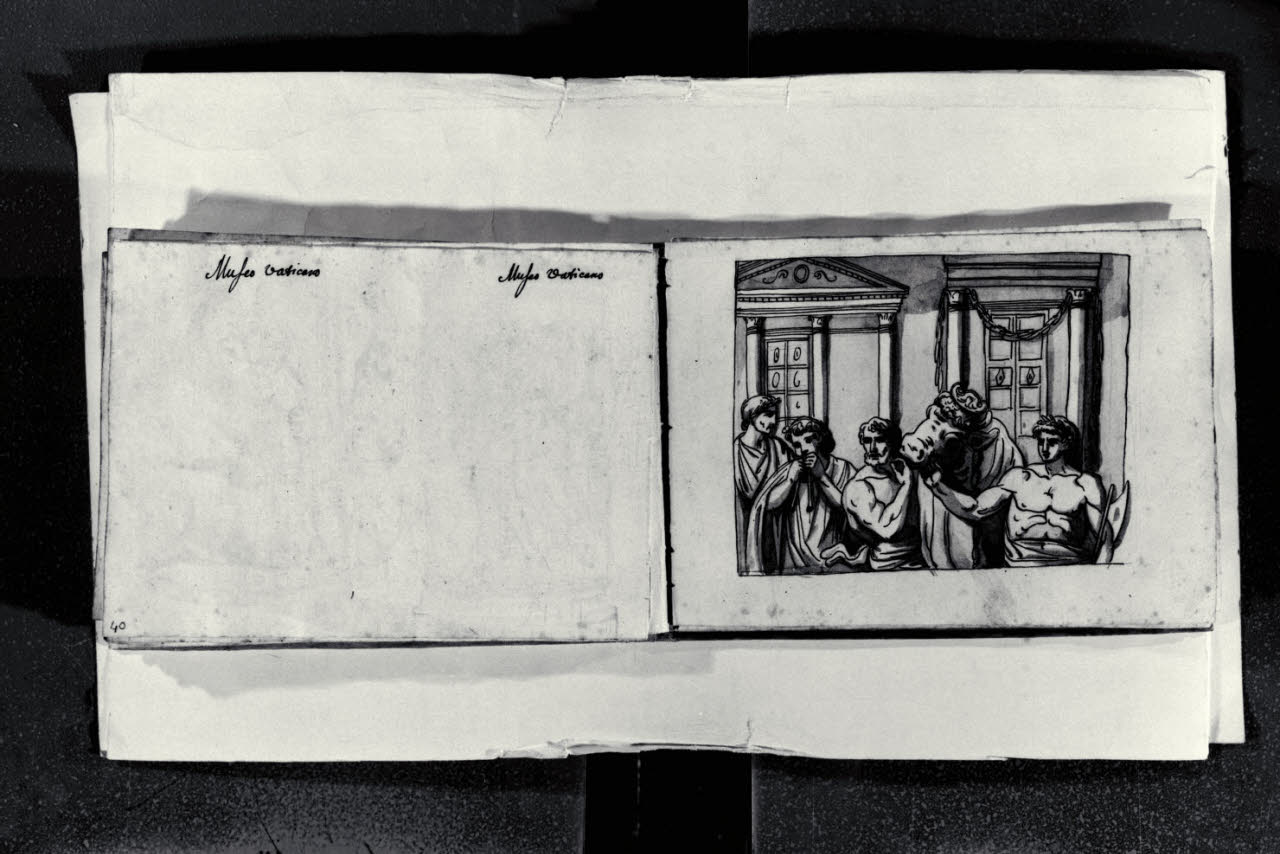 Museo Vaticano
Museo Vaticano
40